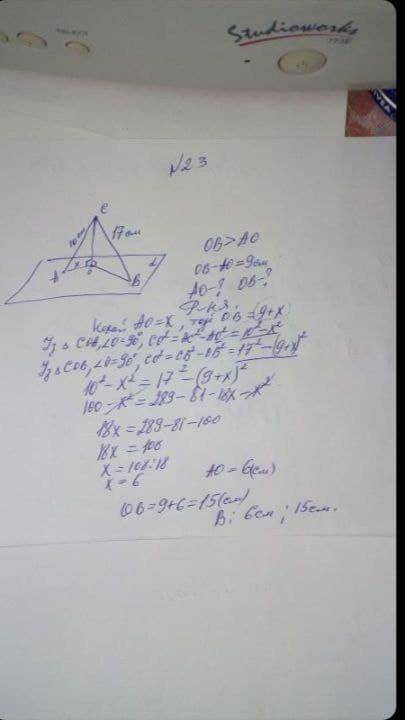 Studioworks
N23
C
10см
17см
A
x
O
B
α
OB>AO
OB-AO=9см
AO-? OB-?
Р-ня.
Нехай AO=x, тоді OB=(9+x)
Із △ COA, ∠O=90°, CO²=AC²-AO²=10²-x²
Із △ COB, ∠O=90°, CO²=CB²-OB²=17²-(9+x)²
10²-x²=17²-(9+x)²
100-x²=289-81-18x-x²
18x=289-81-100
18x=108
x=108:18
x=6
AO=6(см)
OB=9+6=15(см)
В: 6см; 15см.